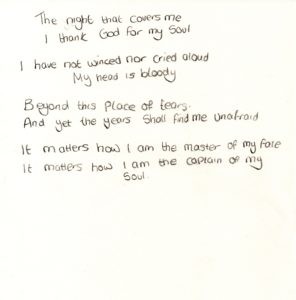 The night that covers me
I thank God for my Soul
I have not winced nor cried aloud
My head is bloody
Beyond this Place of tears.
And yet the years Shall find me Unafraid
It matters how I am the master of my fate
It matters how I am the captain of my
Soul.